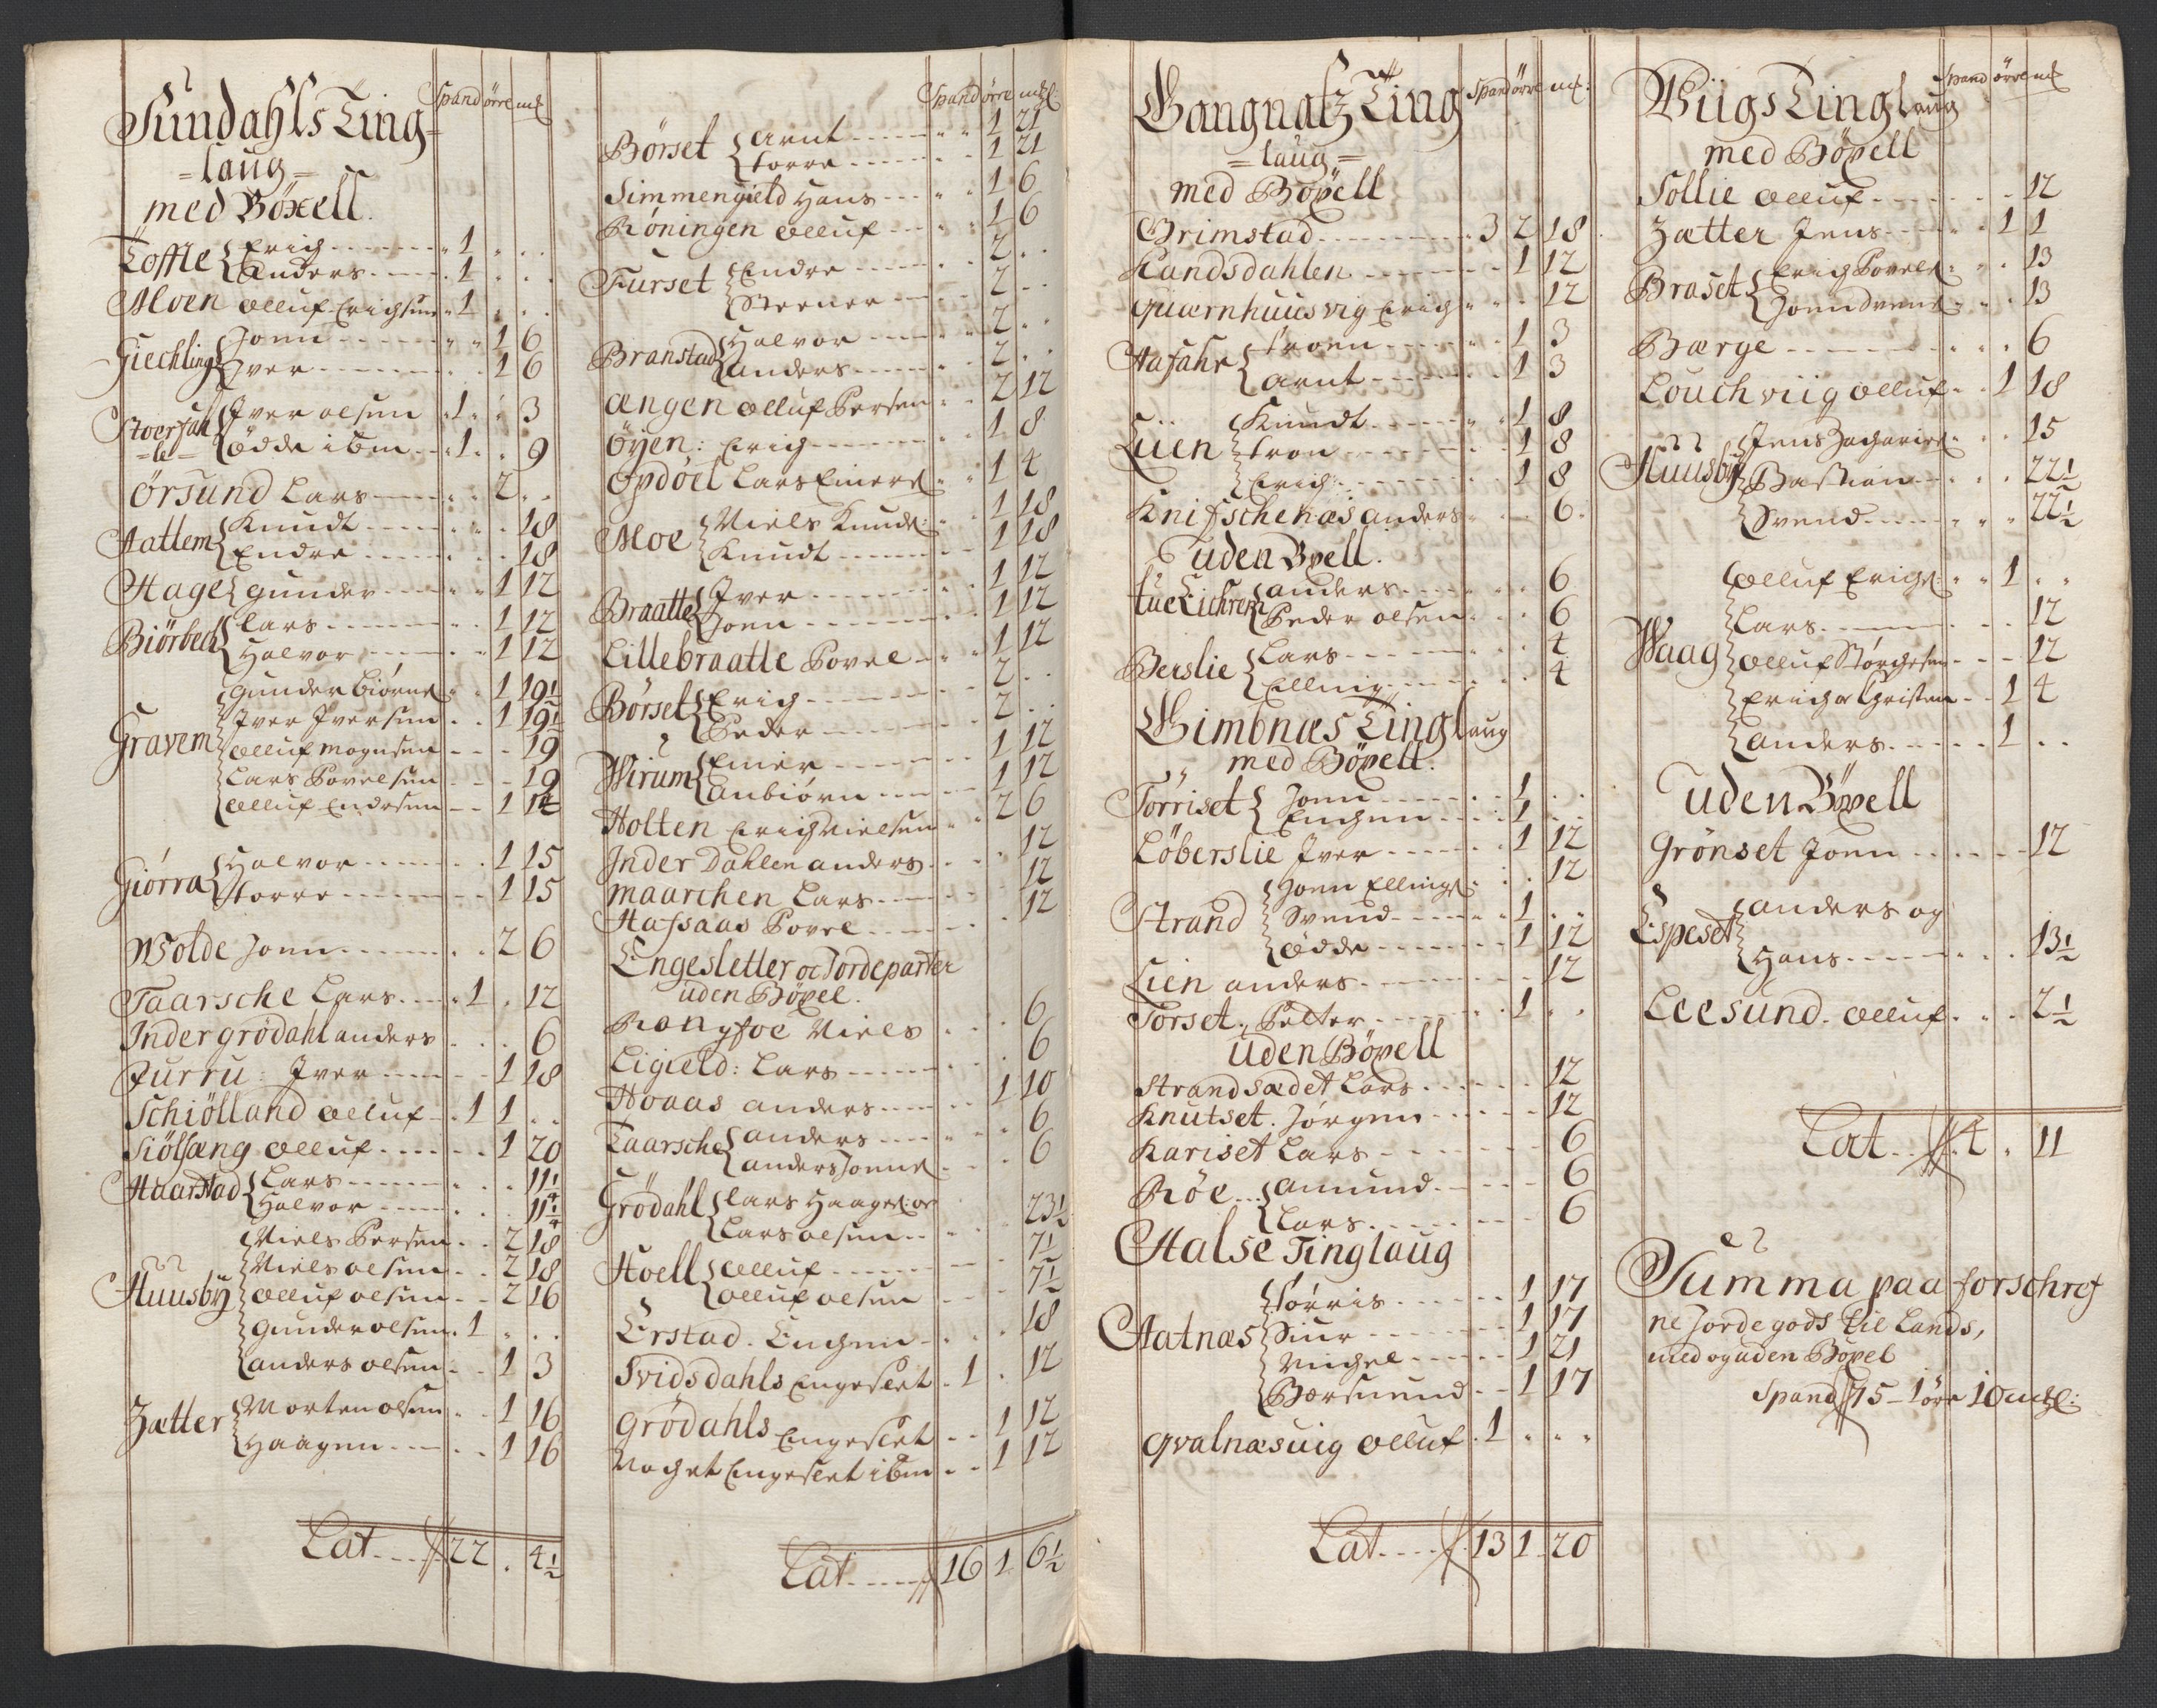 Spand örre mk
Sundahls Ting=
=laug=
med Böxell.
Toffle Erich 1 . .
Anders 1 . .
Moen Olluf Erichsen 1 . .
Giechling Joen 1 6
Iver 1 6
Stoerfah Iver olsen 1 . 3
=le= Ödde ibm 1 . 9
Örsund Lars 2 . .
Aattem Knudt 18
Endre 18
Hage gunder 1 12
Biörbech Lars 1 12
Halvor 1 12
Gravem gunder Biörns 1 19½
Iver Iversen 1 19½
Olluf mognsen 19
Lars Povelsen 19
Olluf Endresen 1 14
Giörra Halvor 1 15
Storre 1 15
Wolde Joen 2 6
Taarsche Lars 1 . 12
Inder grödahl anders 6
Furru: Iver 1 18
Schiölland Olluf 1 1 . .
Siölsæng Olluf 1 20
Haarstad Lars 11¼
Halvor 11¼
Huusbÿ Niels Persen 2 18
Niels olsen 2 18
Olluf olsen 2 16
gunder olsen 1 . .
anders olsen 1 3
Zætter Morten olsen 1 16
Haagen 1 16
Lat 22 . 4½
Spand örre mk
Börset arnt 1 21
torre 1 21
Simmengield Hans 1 6
Röningen Olluf 1 6
Furset Endre 2 . .
Steener 2 . .
Branstad Halvor 2 . .
anders 2 . .
Ængen Olluf Persen 2 12
Öyen: Erich 1 8
Opdöel Lars Einers 1 4
Moe Niels Knuds: 1 18
Knudt 1 18
Braatte Iver 1 12
Joen 1 12
Lillebraatte Povel 1 12
Börset Erich 2 . .
Peder 2 . .
Wirum Einer 1 12
Anbiörn 1 12
Holten Erich Nielsen 2 6
Inder Dahlen anders 12
maarchen Lars 12
Hafsaas Povel 12
Engesletter oc Jordeparter
uden Böxel.
Rongfoe Niels 6
Ligield: Lars 6
Hoaas anders 1 10
Taarsche anders 6
anders Joens 6
Grödahl Lars Haagens: oc
Lars olsen 23½
Hoell Olluf 7½
Olluf olsen 7½
Erstad. Engen 18
Svidsdahls Engeslet 1 . 12
Grödahls Engeslet 1 12
Noch et Engeslet ibm 1 12
Lat 16 1 6½
Spand örre mk:
Gangnatz Ting
=laug=
med Böxell
Grimstad 3 2 18
Kandsdahlen 1 12
quærnhuusvig Erich 12
Aafahr troen 1 3
arnt 1 3
Lien Knudt 1 8
tron 1 8
Erich 1 8
Knifschenæs anders 6
uden Bxell.
tue anders 6
Peder olsen 6
Berslie Lars 4
Elling 4
Gimbnæs Tinglaug
med Böxell.
Törriset Joen 1 . .
Engen 1 . .
Löberslie Iver 1 12
Strand Joen Ellings: 12
Svend 1 . .
Ödde 1 12
Lien anders 12
Torset. Petter 1 . .
Uden Böxell
Strandsædet Lars 12
Knutset. Jörgen 12
Kariset Lars 6
Röe amund 6
Lars 6
Halse Tinglaug
Aatnæs torris 1 17
Siur 1 17
Michel 1 21
Borsuend 1 17
Qvalnæsuig Olluf 1 . .
Lat 13 1 20
Spand örre mk
Wiigs Tinglaug
med Böxell
Sollie Olluf 12
Zætter Jens 1 1
Braset Erich Povels: 13
Joen Svends 13
Bærge 6
Louchviig Olluf 1 18
Huusbÿ Jens Zacharies 15
Bastian 22½
Svend 22½
Waag Olluf Erichs: 1 . .
Lars 12
Olluf Störchersen 12
Erich oc Christen 1 4
anders 1 . .
uden Böxell
Grönset Joen 12
Espeset anders og
Hans 13½
Leesund. Olluf 2½
Lat 4 . 11
Summa paa forschref
ne Jorde gods til Lands,
med og uden Böxel
Spand 75 - 1 örre 10 mkl: